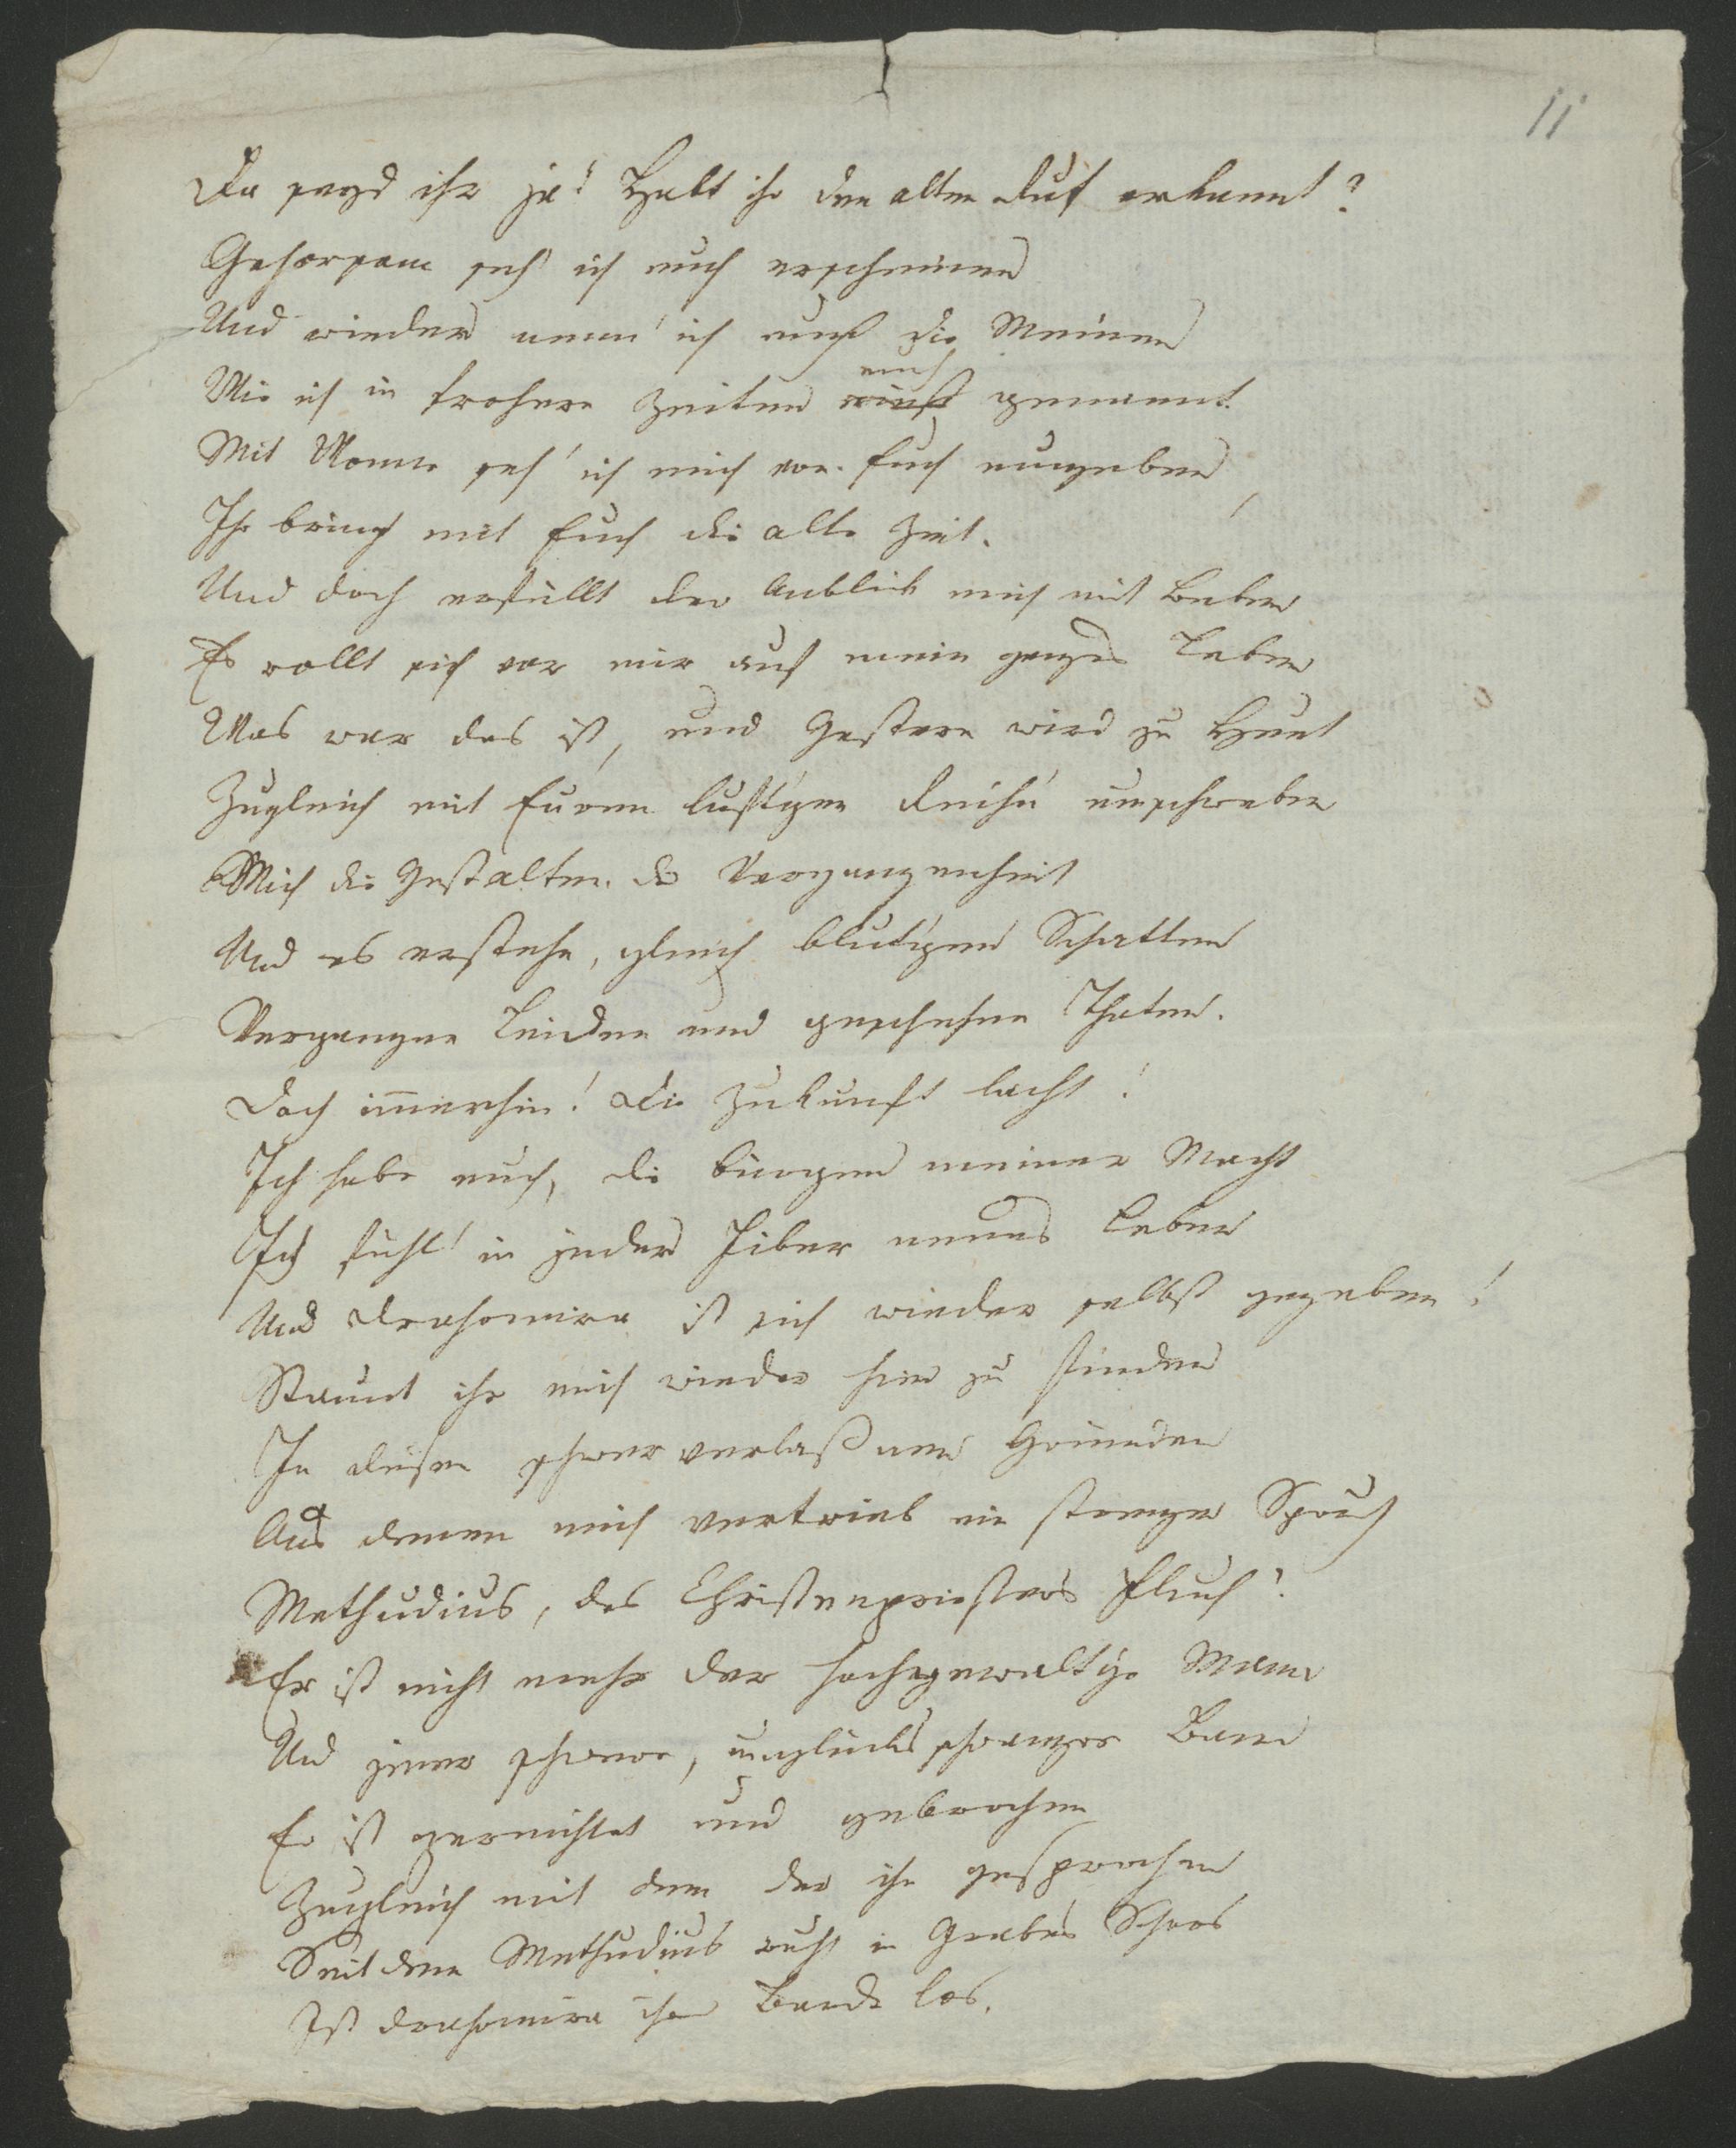 11
Da seyd ihr ja! Habt ihr den alten Ruf erkannt?
Gehorsam seh' ich euch erscheinen
Und wieder nenn' ich euch die Meinen
Wie ich in frohern Zeiten euch genannt.
Mit Wonne seh' ich mich von Euch umgeben
Ihr bringt mit Euch die alte Zeit.
Und doch erfüllt der Anblick mich mit Beben
Es rollt sich vor mir auf mein ganzes Leben
Was war das ist, und Gestern wird zu Heut
Zugleich mit Euren luftgen Reihn umschweben
Mich die Gestalten der Vergangenheit
Und es erstehn, gleich blutigen Schatten
Vergangne Leiden und geschehne Thaten.
Doch immerhin! Die Zukunft lacht!
Ich habe euch, die Bürgen meiner Macht
Ich fühl' in jeder Fiber neues Leben
Und Drahomira ist sich wieder selbst gegeben!
Staunt ihr mich wieder hier zu finden
In diesen schwer verlaßnen Gründen
Aus denen mich vertrieb ein strenger Spruch
Methudius, des Christenpriesters Fluch?
Er ist nicht mehr der hochgewaltge Mann
Und jener schwere, unglücksschwangre Bann
Er ist zernichtet und gebrochen
Zugleich mit dem der ihn gesprochen
Seit dem Methudius ruht in Grabes Schoos
Ist Drahomira ihrer Bande los.